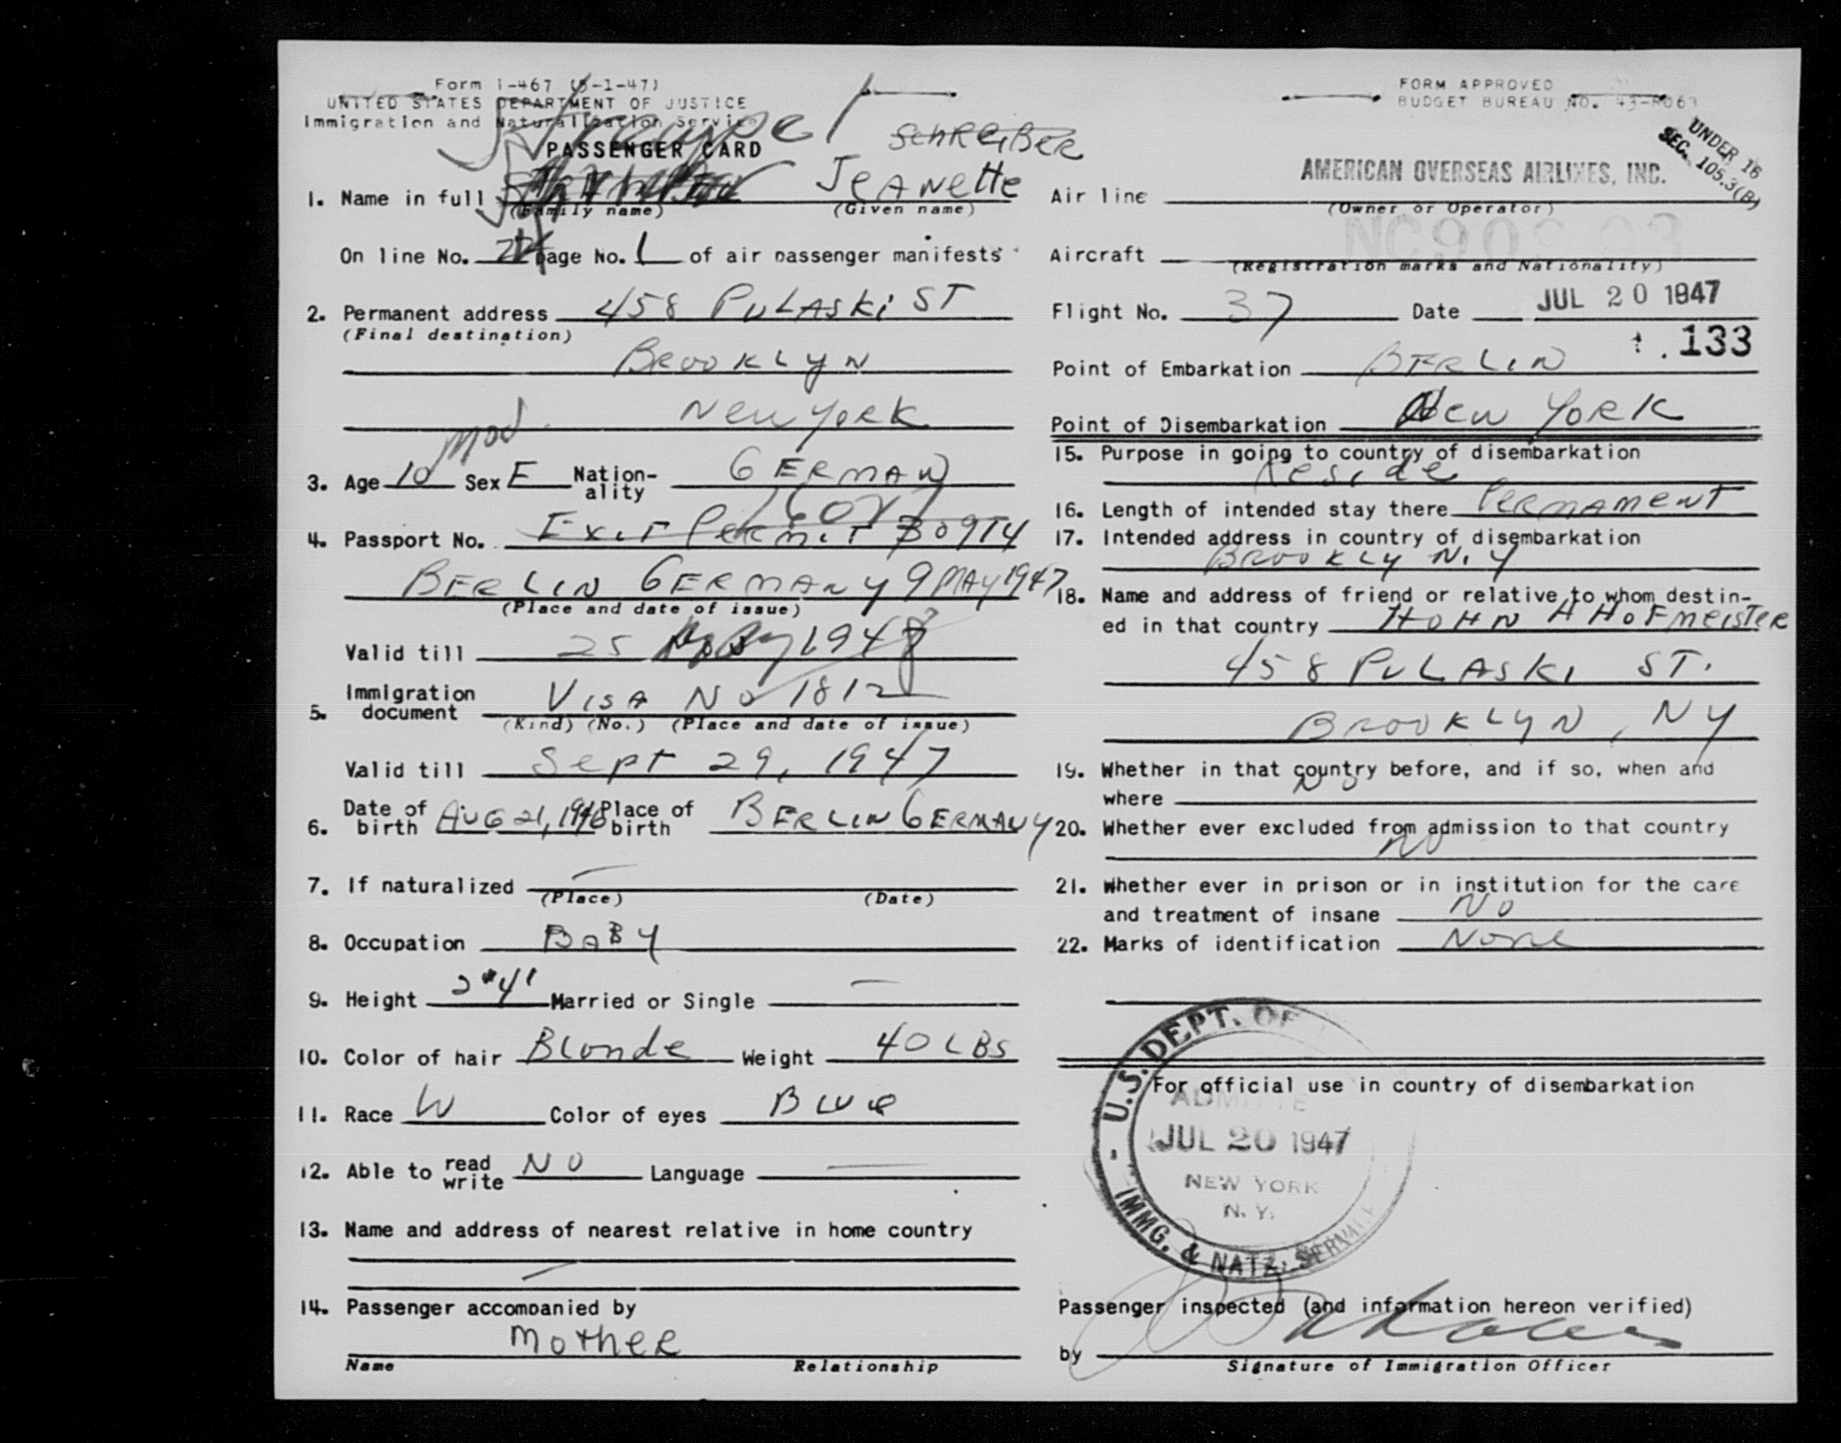 Form I-467 (5-1-47)
UNITED STATES DEPARTMENT OF JUSTICE
Immigration and Naturalization Service
PASSENGER CARD
SCHREIBER
1. Name in full JEANETTE
(Family name) (Given name)
On line No. Page No. 1 of air passenger manifests
2. Permanent address 458 PULASKI ST
(Final destination)
BROOKLYN
NEW YORK
3. Age 10 mod Sex F Nationality GERMAN
4. Passport No. EXIT PERMIT
BERLIN GERMANY 9 MAY 1947
(Place and date of issue)
Valid till 25 1948
5. Immigration document VISA NO 1812
(Kind) (No.) (Place and date of issue)
Valid till Sept 29, 1947
6. Date of birth AUG 21, 1946 Place of birth BERLIN GERMANY
7. If naturalized —
(Place) (Date)
8. Occupation BABY
9. Height Married or Single —
10. Color of hair BLONDE Weight 40 LBS
11. Race W Color of eyes BLUE
12. Able to read write NO Language —
13. Name and address of nearest relative in home country
—
14. Passenger accompanied by
MOTHER
Name Relationship
FORM APPROVED
BUDGET BUREAU NO. 43-R063
UNDER 16
SEC. 105.3(B)
Air line AMERICAN OVERSEAS AIRLINES, INC.
(Owner or Operator)
Aircraft
(Registration marks and Nationality)
Flight No. 37 Date JUL 20 1947
133
Point of Embarkation BERLIN
Point of Disembarkation NEW YORK
15. Purpose in going to country of disembarkation
Reside
16. Length of intended stay there PERMAMENT
17. Intended address in country of disembarkation
BROOKLY N.Y
18. Name and address of friend or relative to whom destined in that country HOHN A HOFMEISTER
458 PULASKI ST.
BROOKLYN, NY
19. Whether in that country before, and if so, when and
where NO
20. Whether ever excluded from admission to that country
NO
21. Whether ever in prison or in institution for the care
and treatment of insane NO
22. Marks of identification None
For official use in country of disembarkation
U.S. DEPT. OF
ADMITTE
JUL 20 1947
NEW YORK
N. Y.
IMMG. & NATZ. SERV.
Passenger inspected (and information hereon verified)
by
Signature of Immigration Officer